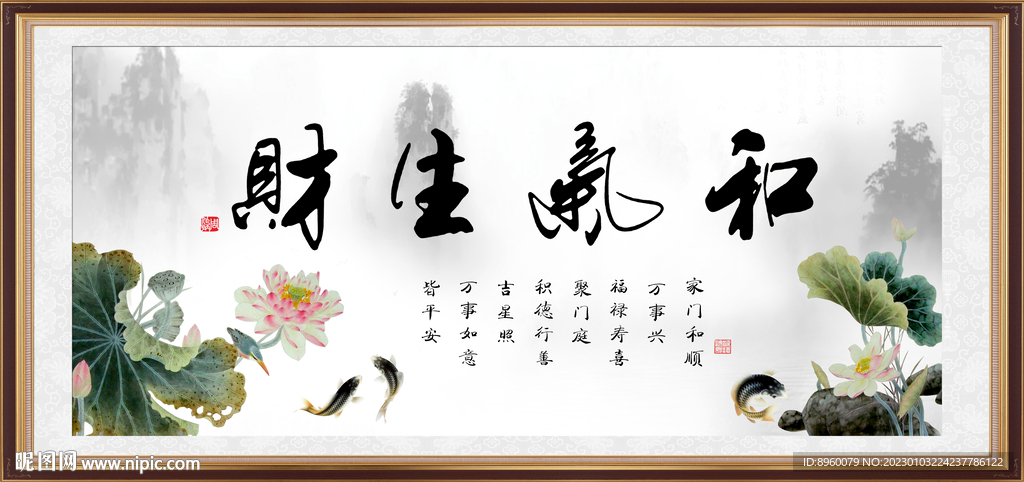 和氣生財
家门和顺
万事兴
福禄寿喜
聚门庭
积德行善
吉星照
万事如意
皆平安
昵图网 www.nipic.com
ID:8960079 NO:20230103224237786122